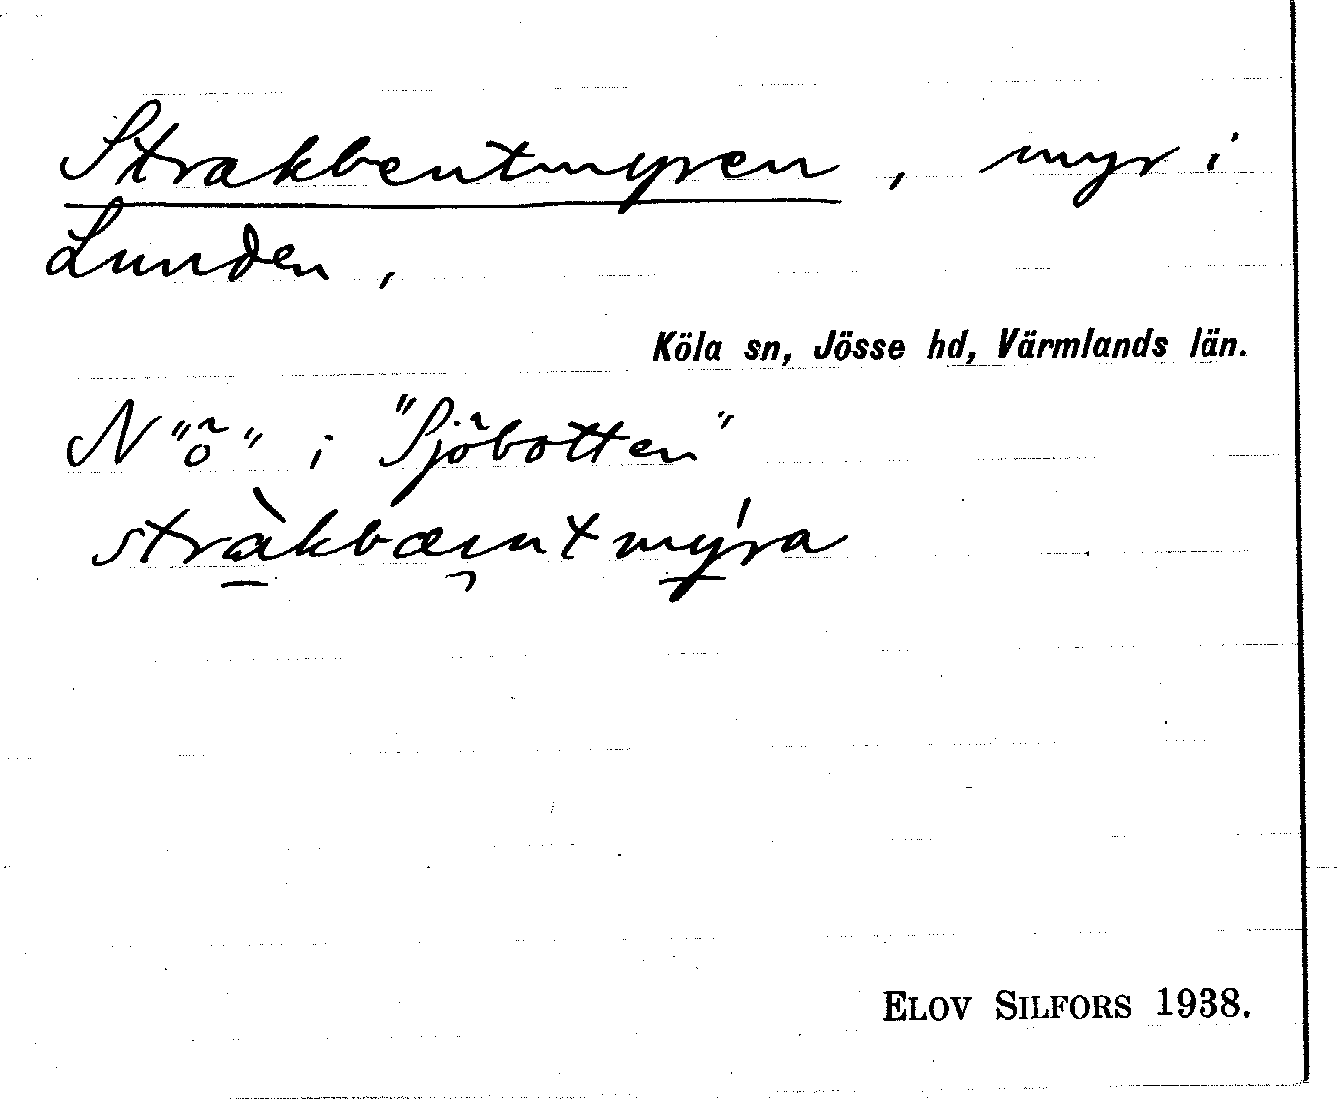 Strakbentmyren, myr i
Lunden,
Köla sn, Jösse hd, Värmlands län.
N "ö" i "Sjöbotten"
stràkbæi̯ntmýra
ELOV SILFORS 1938.